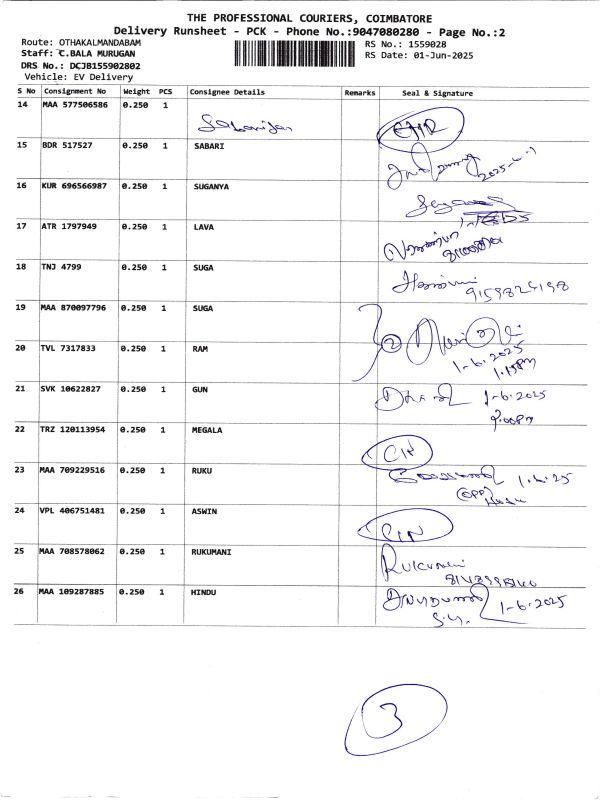 THE PROFESSIONAL COURIERS, COIMBATORE
Delivery Runsheet - PCK - Phone No.:9047080280 - Page No.:2
Route: OTHAKALMANDABAM
Staff: C.BALA MURUGAN
RS No.: 1559028
DRS No.: DCJB155902802
RS Date: 01-Jun-2025
Vehicle: EV Delivery
S No Consignment No Weight PCS Consignee Details Remarks Seal & Signature
14 MAA 577506586 0.250 1
15 BDR 517527 0.250 1 SABARI
2025-6-1
16 KUR 696566987 0.250 1 SUGANYA
17 ATR 1797949 0.250 1 LAVA
18 TNJ 4799 0.250 1 SUGA
19 MAA 870097796 0.250 1 SUGA
2
20 TVL 7317833 0.250 1 RAM
1-6-2025
1.15pm
21 SVK 10622827 0.250 1 GUN
1-6-2025
2.00pm
22 TRZ 120113954 0.250 1 MEGALA
23 MAA 709229516 0.250 1 RUKU
1.6.25
24 VPL 406751481 0.250 1 ASWIN
25 MAA 708578062 0.250 1 RUKUMANI
26 MAA 109287885 0.250 1 HINDU
1-6-2025
3